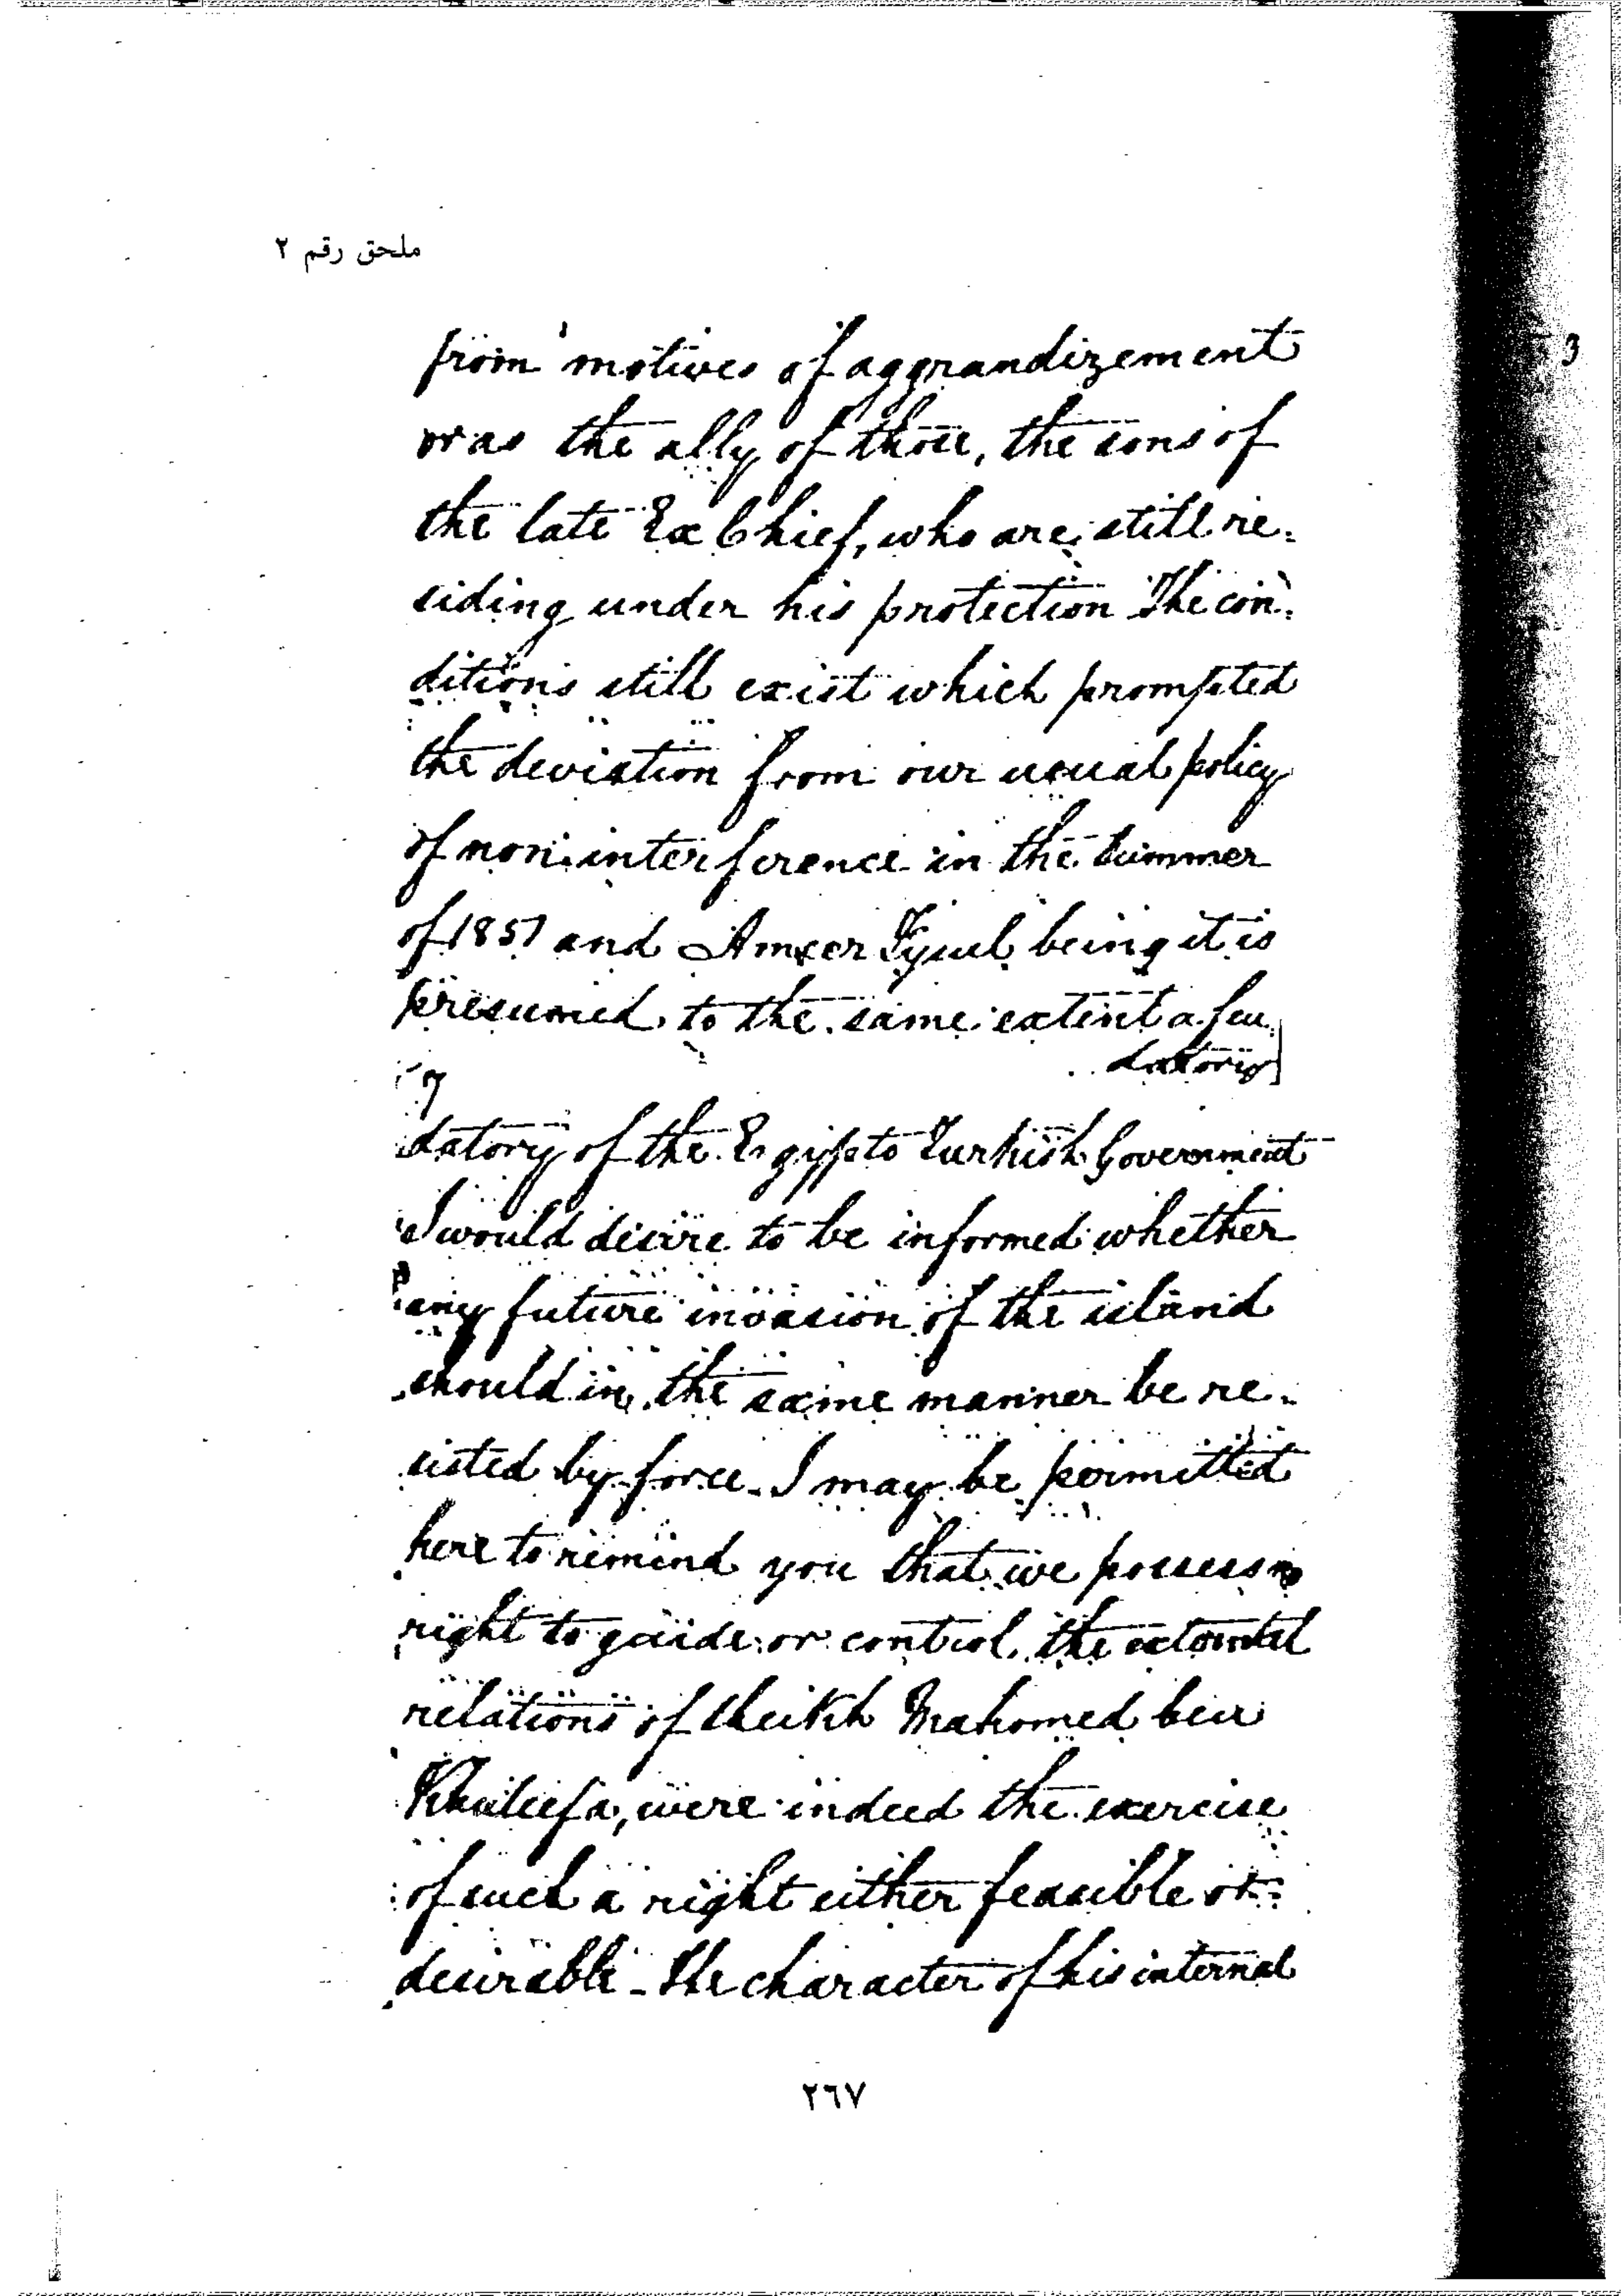 ملحق رقم ٢
from motives of aggrandizement
or as the ally of those, the sons of
the late Ex Chief, who are still re-
siding under his protection The con-
ditions still exist which prompted
the deviation from our usual policy
of non-interference in the Summer
of 1851 and Ameer Fysul being it is
presumed to the same extent a feu
datory
7
datory of the Egypto Turkish Government
I would desire to be informed whether
any future invasion of the island
should in the same manner be re-
sisted by force - I may be permitted
here to remind you that we possess no
right to guide or control the external
relations of Sheikh Mahomed bin
Khaleefa, were indeed the exercise
of such a right either feasible or
desirable - The character of his internal
٢٦٧
3